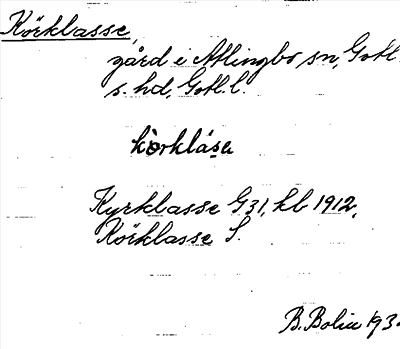 Körklasse,
gård i Atlingbo sn, Gotl.
s. hd, Gotl. l.
kòrklása
Kyrklasse G31, kb 1912,
Körklasse S.
B. Bolin 193